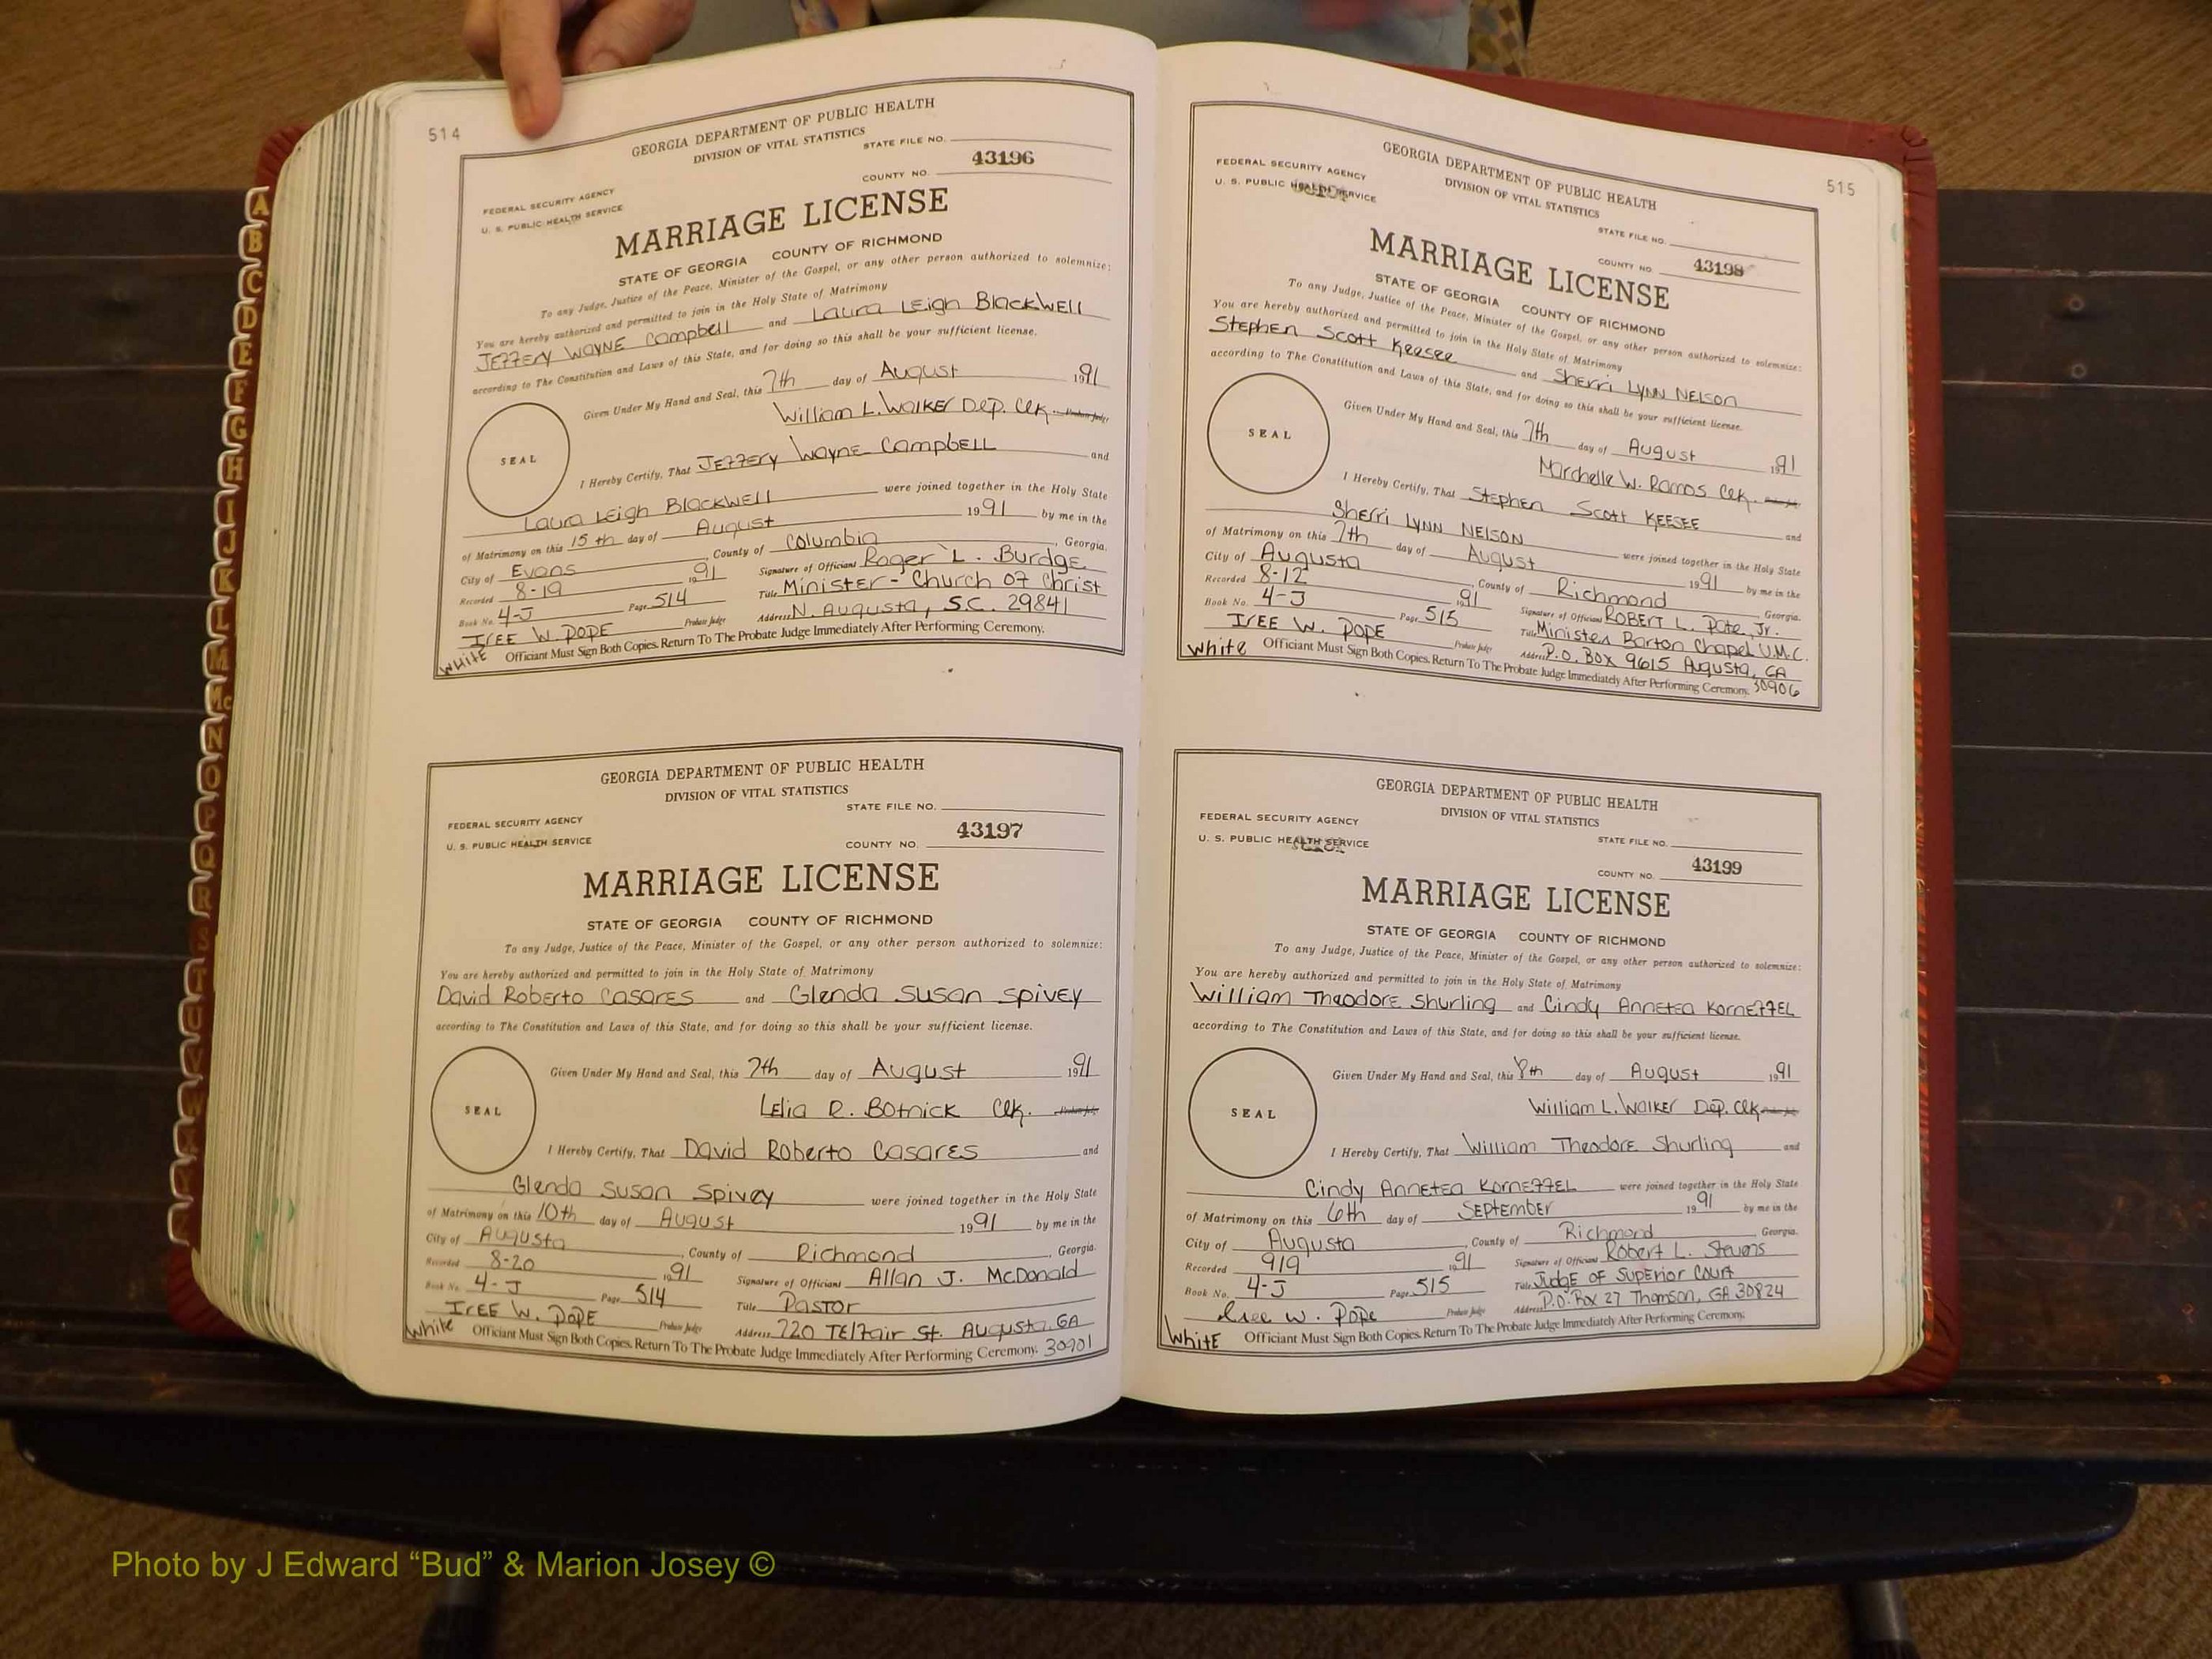 514
GEORGIA DEPARTMENT OF PUBLIC HEALTH
DIVISION OF VITAL STATISTICS
STATE FILE NO.
43196
COUNTY NO.
FEDERAL SECURITY AGENCY
U. S. PUBLIC HEALTH SERVICE
MARRIAGE LICENSE
STATE OF GEORGIA COUNTY OF RICHMOND
To any Judge, Justice of the Peace, Minister of the Gospel, or any other person authorized to solemnize:
You are hereby authorized and permitted to join in the Holy State of Matrimony
Jeffery Wayne Campbell and Laura Leigh Blackwell
according to The Constitution and Laws of this State, and for doing so this shall be your sufficient license.
Given Under My Hand and Seal, this 7th day of August 1991
William L. Walker Dep. Clk. Probate Judge
SEAL
I Hereby Certify, That Jeffery Wayne Campbell and
Laura Leigh Blackwell were joined together in the Holy State
of Matrimony on this 15th day of August 1991 by me in the
City of Evans, County of Columbia, Georgia.
Recorded 8-19 1991 Signature of Officiant Roger L. Burdge
Book No. 4-J Page 514 Title Minister - Church of Christ
Iree W. Pope Probate Judge Address N. Augusta, S.C. 29841
White Officiant Must Sign Both Copies. Return To The Probate Judge Immediately After Performing Ceremony.
GEORGIA DEPARTMENT OF PUBLIC HEALTH
DIVISION OF VITAL STATISTICS
STATE FILE NO.
43197
COUNTY NO.
FEDERAL SECURITY AGENCY
U. S. PUBLIC HEALTH SERVICE
MARRIAGE LICENSE
STATE OF GEORGIA COUNTY OF RICHMOND
To any Judge, Justice of the Peace, Minister of the Gospel, or any other person authorized to solemnize:
You are hereby authorized and permitted to join in the Holy State of Matrimony
David Roberto Casares and Glenda Susan Spivey
according to The Constitution and Laws of this State, and for doing so this shall be your sufficient license.
Given Under My Hand and Seal, this 7th day of August 1991
Lelia R. Botnick Clk. Probate Judge
SEAL
I Hereby Certify, That David Roberto Casares and
Glenda Susan Spivey were joined together in the Holy State
of Matrimony on this 10th day of August 1991 by me in the
City of Augusta, County of Richmond, Georgia.
Recorded 8-20 1991 Signature of Officiant Allan J. McDonald
Book No. 4-J Page 514 Title Pastor
Iree W. Pope Probate Judge Address 720 Telfair St. Augusta, GA
White Officiant Must Sign Both Copies. Return To The Probate Judge Immediately After Performing Ceremony. 30901
515
GEORGIA DEPARTMENT OF PUBLIC HEALTH
DIVISION OF VITAL STATISTICS
STATE FILE NO.
COUNTY NO. 43198
FEDERAL SECURITY AGENCY
U. S. PUBLIC HEALTH SERVICE
MARRIAGE LICENSE
STATE OF GEORGIA COUNTY OF RICHMOND
To any Judge, Justice of the Peace, Minister of the Gospel, or any other person authorized to solemnize:
You are hereby authorized and permitted to join in the Holy State of Matrimony
Stephen Scott Keesee and Sherri Lynn Nelson
according to The Constitution and Laws of this State, and for doing so this shall be your sufficient license.
Given Under My Hand and Seal, this 7th day of August 1991
Marchelle W. Ramos Clk.
SEAL
I Hereby Certify, That Stephen Scott Keesee and
Sherri Lynn Nelson were joined together in the Holy State
of Matrimony on this 7th day of August 1991 by me in the
City of Augusta, County of Richmond, Georgia.
Recorded 8-12 1991 Signature of Officiant Robert L. Pate, Jr.
Book No. 4-J Page 515 Title Minister Barton Chapel U.M.C.
Iree W. Pope Probate Judge Address P.O. Box 9615 Augusta, GA
White Officiant Must Sign Both Copies. Return To The Probate Judge Immediately After Performing Ceremony. 30906
GEORGIA DEPARTMENT OF PUBLIC HEALTH
DIVISION OF VITAL STATISTICS
STATE FILE NO.
43199
COUNTY NO.
FEDERAL SECURITY AGENCY
U. S. PUBLIC HEALTH SERVICE
MARRIAGE LICENSE
STATE OF GEORGIA COUNTY OF RICHMOND
To any Judge, Justice of the Peace, Minister of the Gospel, or any other person authorized to solemnize:
You are hereby authorized and permitted to join in the Holy State of Matrimony
William Theodore Shurling and Cindy Annetea Korneffel
according to The Constitution and Laws of this State, and for doing so this shall be your sufficient license.
Given Under My Hand and Seal, this 8th day of August 1991
William L. Walker Dep. Clk
SEAL
I Hereby Certify, That William Theodore Shurling and
Cindy Annetea Korneffel were joined together in the Holy State
of Matrimony on this 6th day of September 1991 by me in the
City of Augusta, County of Richmond Georgia.
Recorded 9/9 1991 Signature of Officiant Robert L. Stevens
Book No. 4-J Page 515 Title Judge of Superior Court
Iree W. Pope Probate Judge Address P.O. Box 27 Thomson, GA 30824
White Officiant Must Sign Both Copies. Return To The Probate Judge Immediately After Performing Ceremony.
A
B
C
D
E
F
G
H
I
J
K
L
M
Mc
N
O
P
Q
R
S
T
U
V
W
Photo by J Edward “Bud” & Marion Josey ©